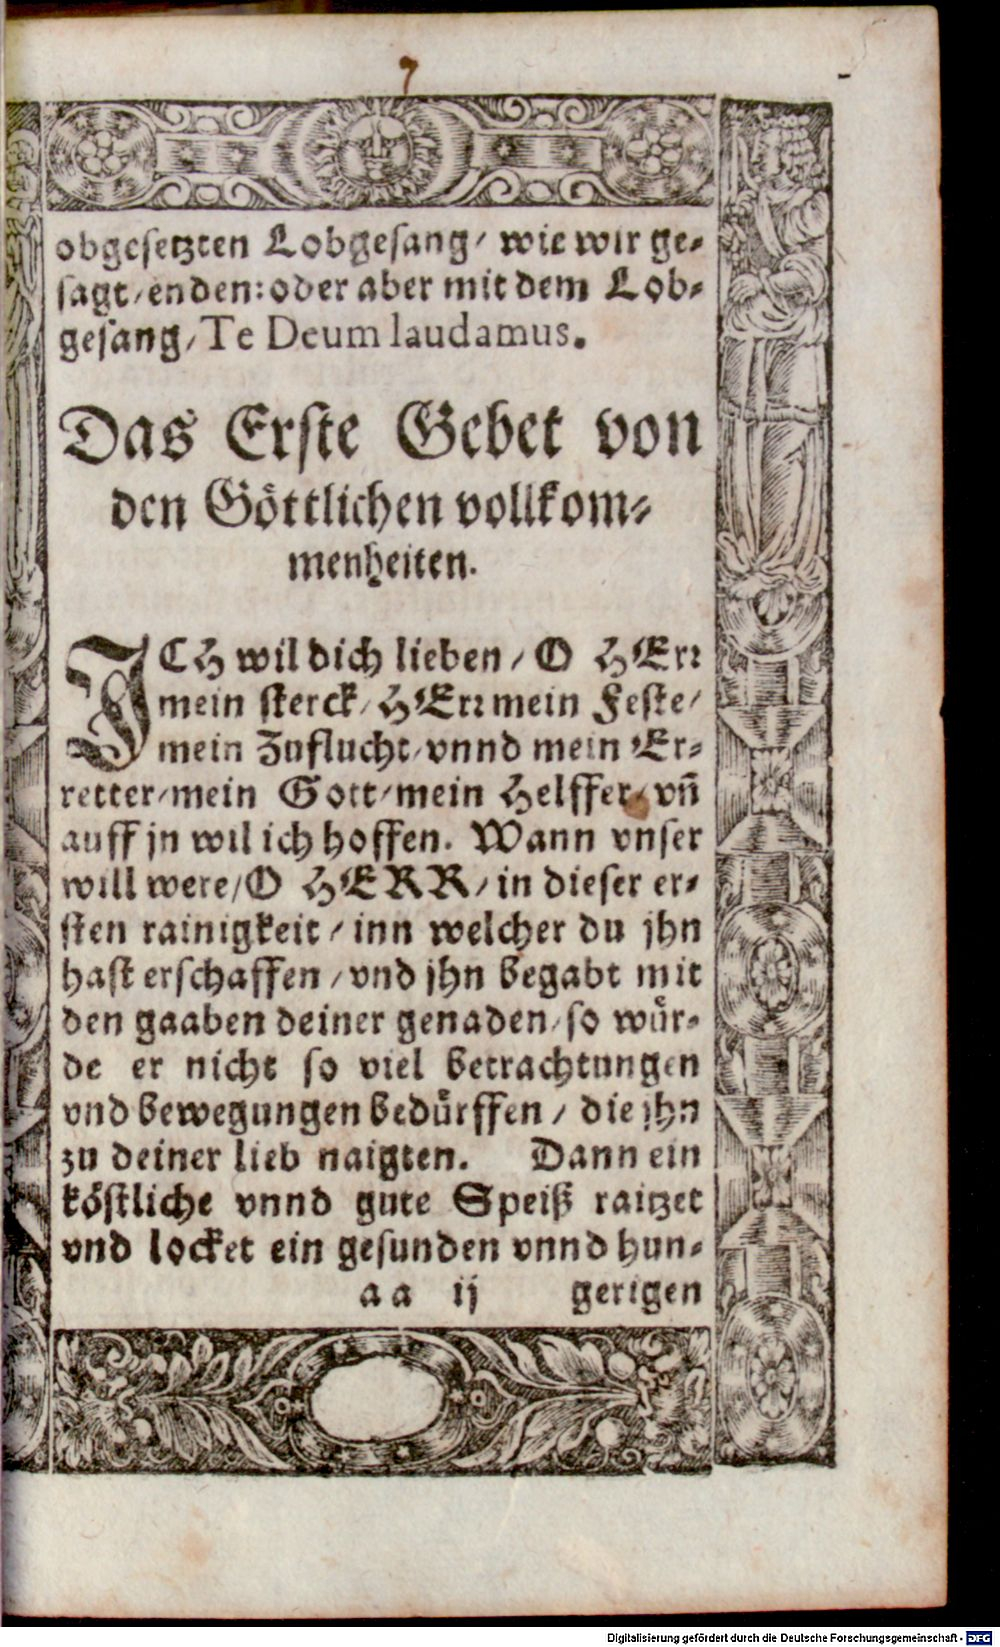 7
obgesetzten Lobgesang/ wie wir ge⸗
sagt/ enden: oder aber mit dem Lob⸗
gesang/ Te Deum laudamus.
Das Erste Gebet von
den Göttlichen vollkom⸗
menheiten.
ICH wil dich lieben/ O HErr
mein sterck/ HErr mein Feste/
mein Zuflucht/ vnnd mein Er⸗
retter/ mein Gott/ mein Helffer/ vñ
auff jn wil ich hoffen. Wann vnser
will were/ O HERR/ in dieser er⸗
sten rainigkeit/ inn welcher du jhn
hast erschaffen/ vnd jhn begabt mit
den gaaben deiner genaden/ so wür⸗
de er nicht so viel betrachtungen
vnd bewegungen bedürffen/ die jhn
zu deiner lieb naigten. Dann ein
köstliche vnnd gute Speiß raitzet
vnd locket ein gesunden vnnd hun⸗
aa ij gerigen
Digitalisierung gefördert durch die Deutsche Forschungsgemeinschaft - DFG